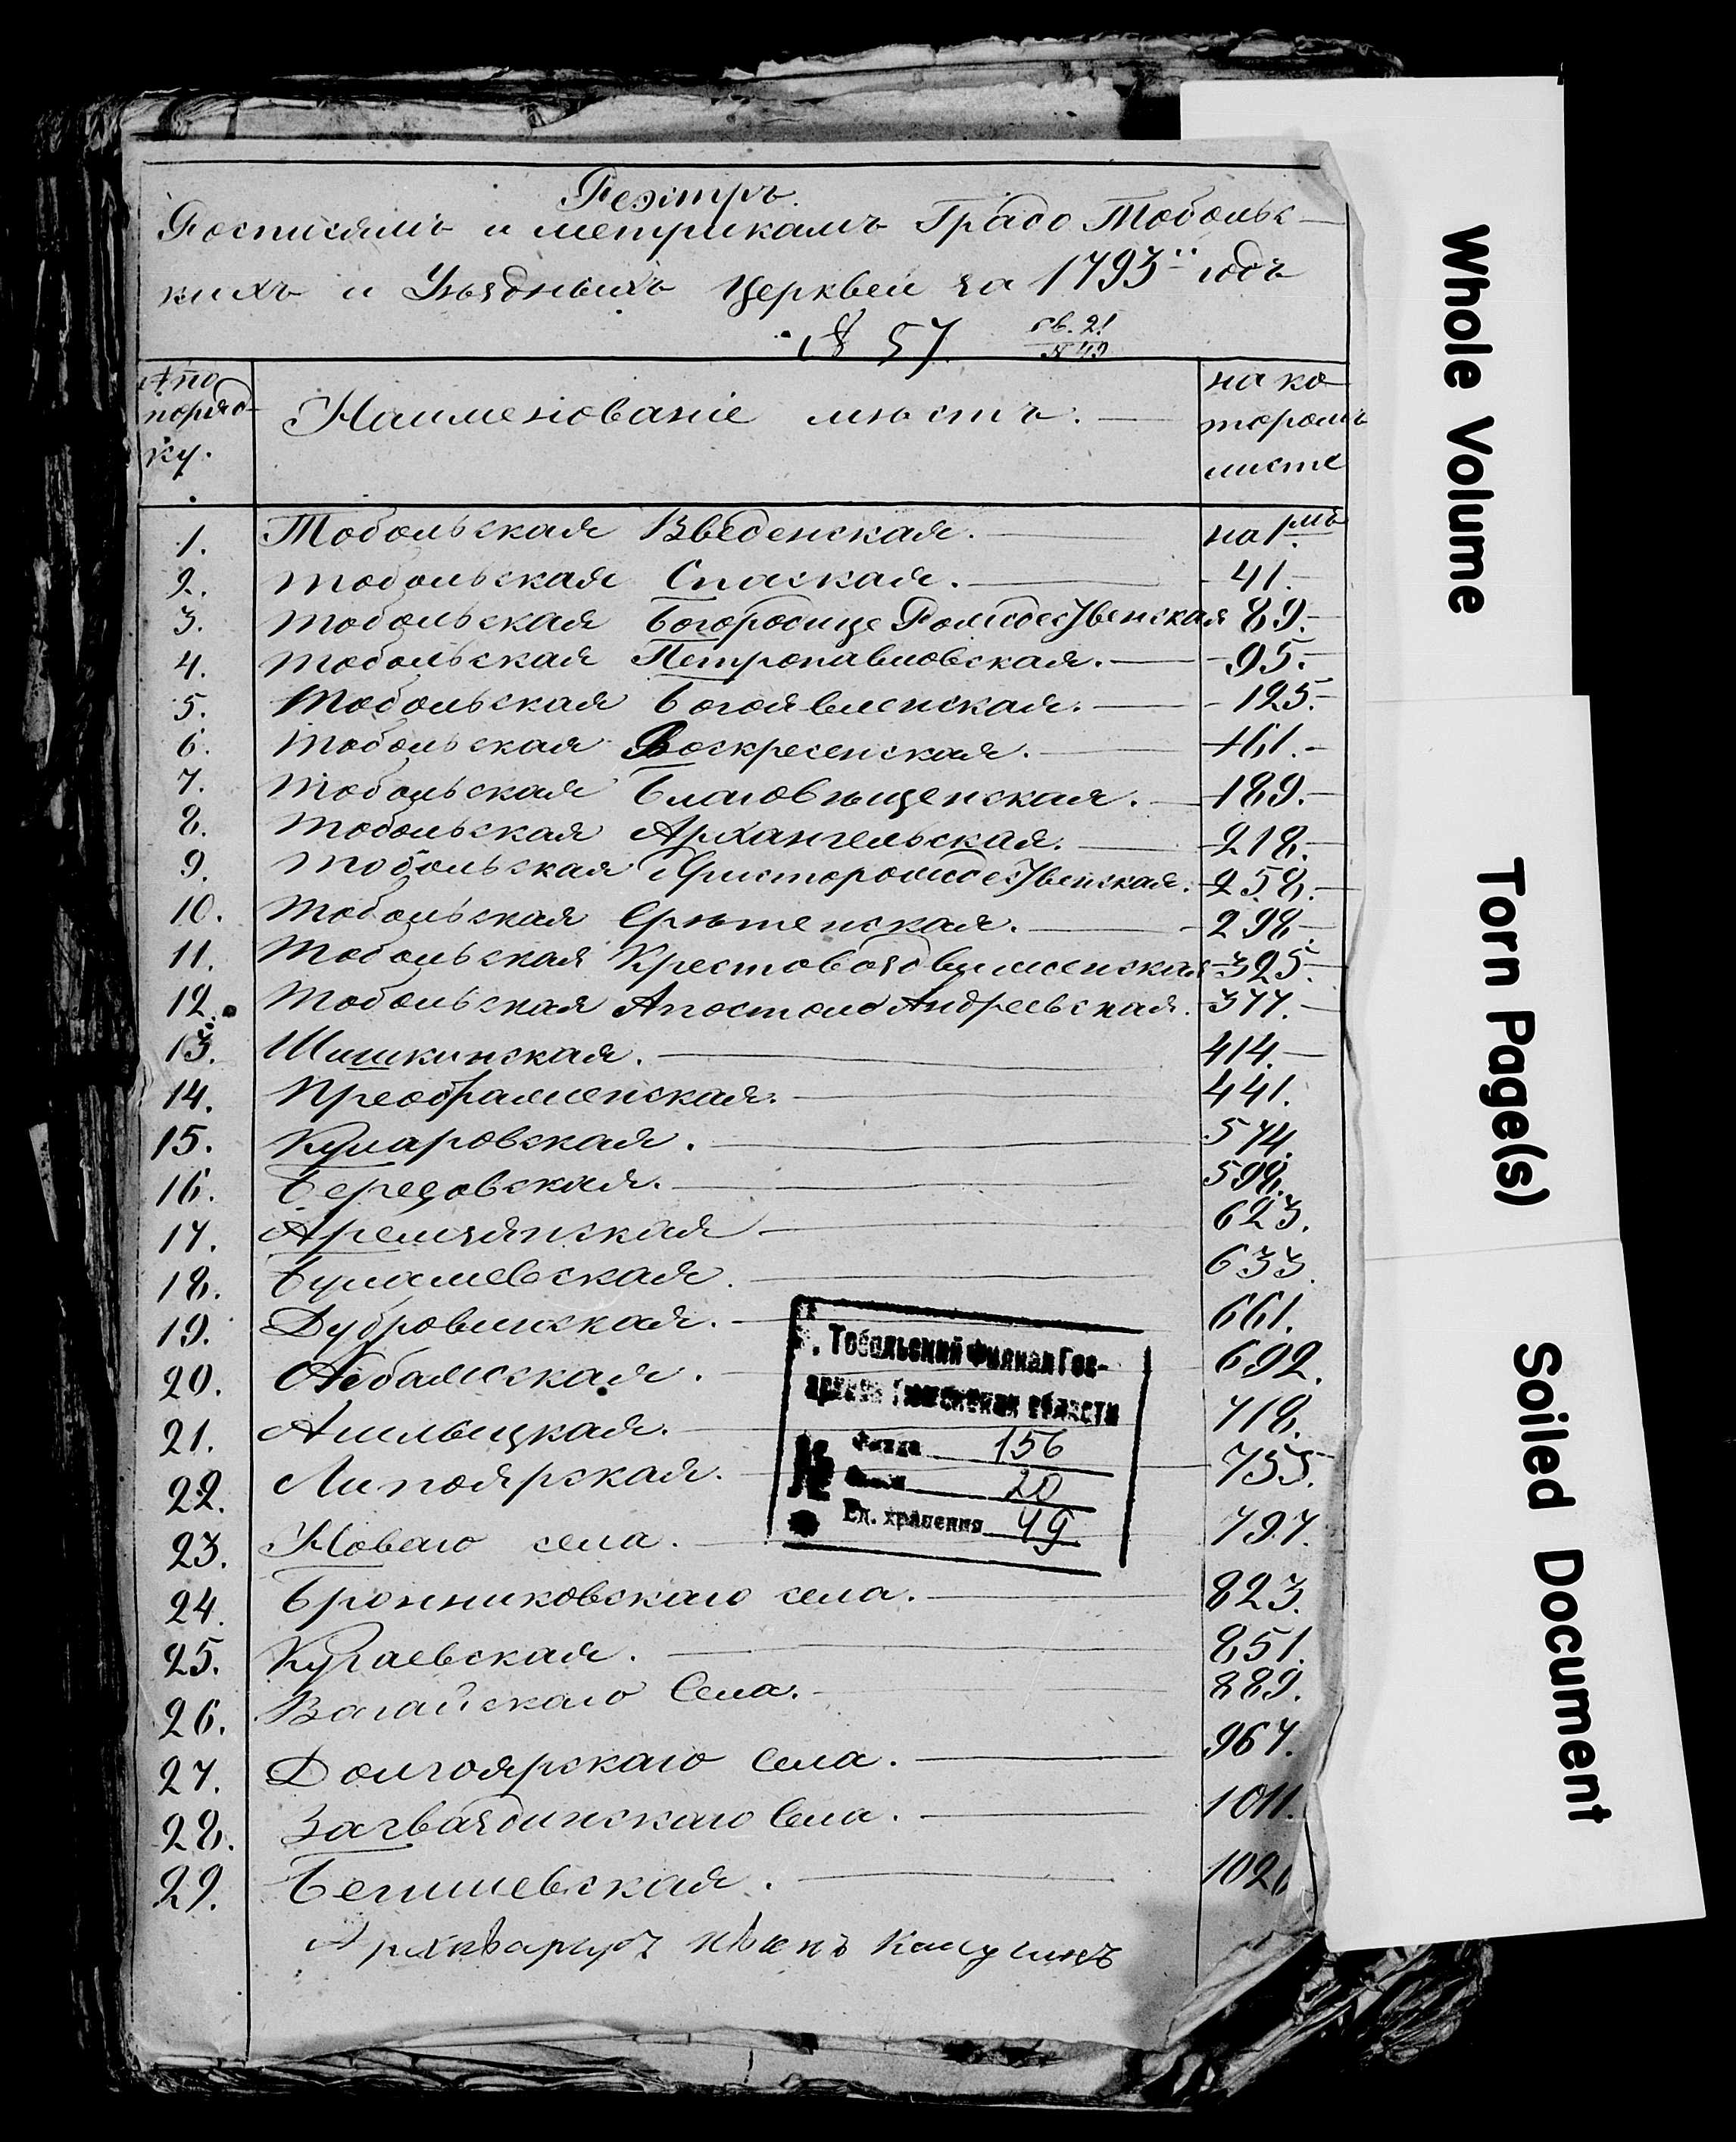 Реэстръ.
Росписямъ и метрикамъ Градо Тобольс-
кихъ и Уѣздныхъ Церквей за 1793й годъ
№ 57 св. 21
№ 49
№ по
порядо-
ку.
Наименованіе мѣстъ.
на ко-
торомъ
листе
1. Тобольская Введенская. на 1мъ
2. Тобольская Спаская. 41.
3. Тобольская Богородице Рождественская 89.
4. Тобольская Петропавловская. 95.
5. Тобольская Богоявленская. 125.
6. Тобольская Воскресенская. 161.
7. Тобольская Благовѣщенская. 189.
8. Тобольская Архангельская. 218.
9. Тобольская Христорождественская. 258.
10. Тобольская Срѣтенская. 298.
11. Тобольская Крестовоздвиженская 325.
12. Тобольская Апостоло Андреевская. 377.
13. Шишкинская. 414.
14. Преображенская. 441.
15. Куларовская. 574.
16. Березовская. 598.
17. Аремзянская 623.
18. Булашевская. 633.
19. Дубровинская. 661.
20. Абалакская. 692.
21. Ашлыцкая. 718.
22. Липоярская. 755.
23. Новаго села. 797.
24. Бронниковскаго села. 823.
25. Кугаевская. 851.
26. Вагайскаго Села. 889.
27. Долгоярскаго Села. 967.
28. Загваздинскаго Села. 1011.
29. Бегишевская. 102
Тобольский Филиал Гос-
архива Тюменская области
Фонд 156
№ Опись 20
Ед. хранения 49
Whole Volume
Torn Page(s)
Soiled Document